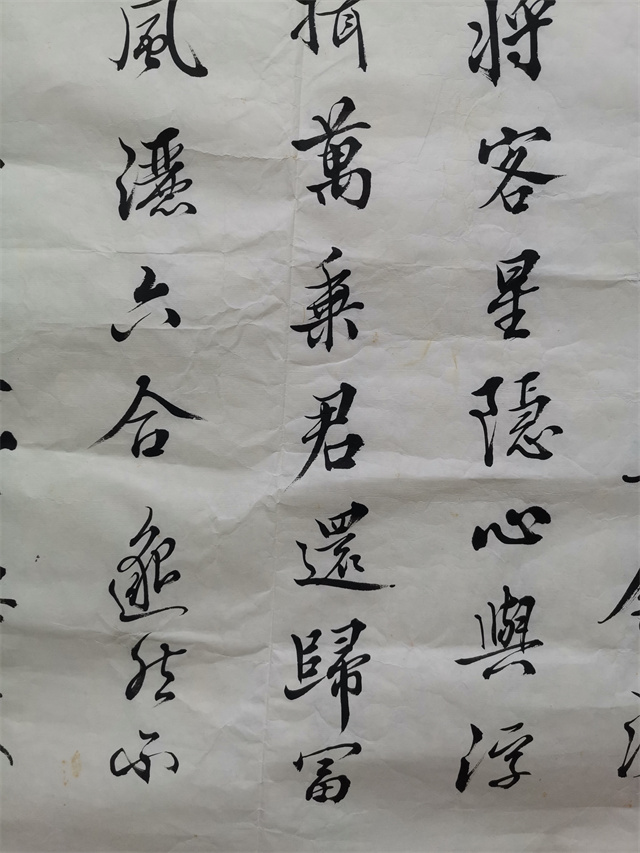 將客星隱心與浮
揖萬乘君還歸富
風灑六合邈然不